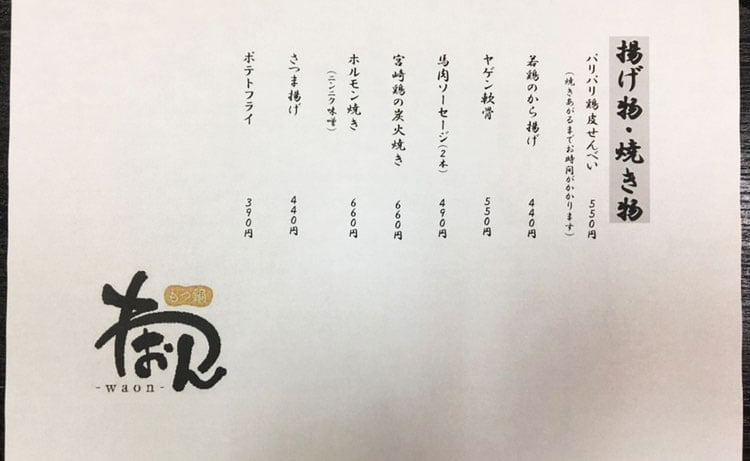 揚げ物・焼き物
パリパリ鶏皮せんべい 550円
（焼きあがるまでお時間がかかります）
若鶏のから揚げ 440円
ヤゲン軟骨 550円
馬肉ソーセージ（2本） 490円
宮崎鶏の炭火焼き 660円
ホルモン焼き 660円
（ニンニク味噌）
さつま揚げ 440円
ポテトフライ 390円
もつ鍋
わおん
-waon-